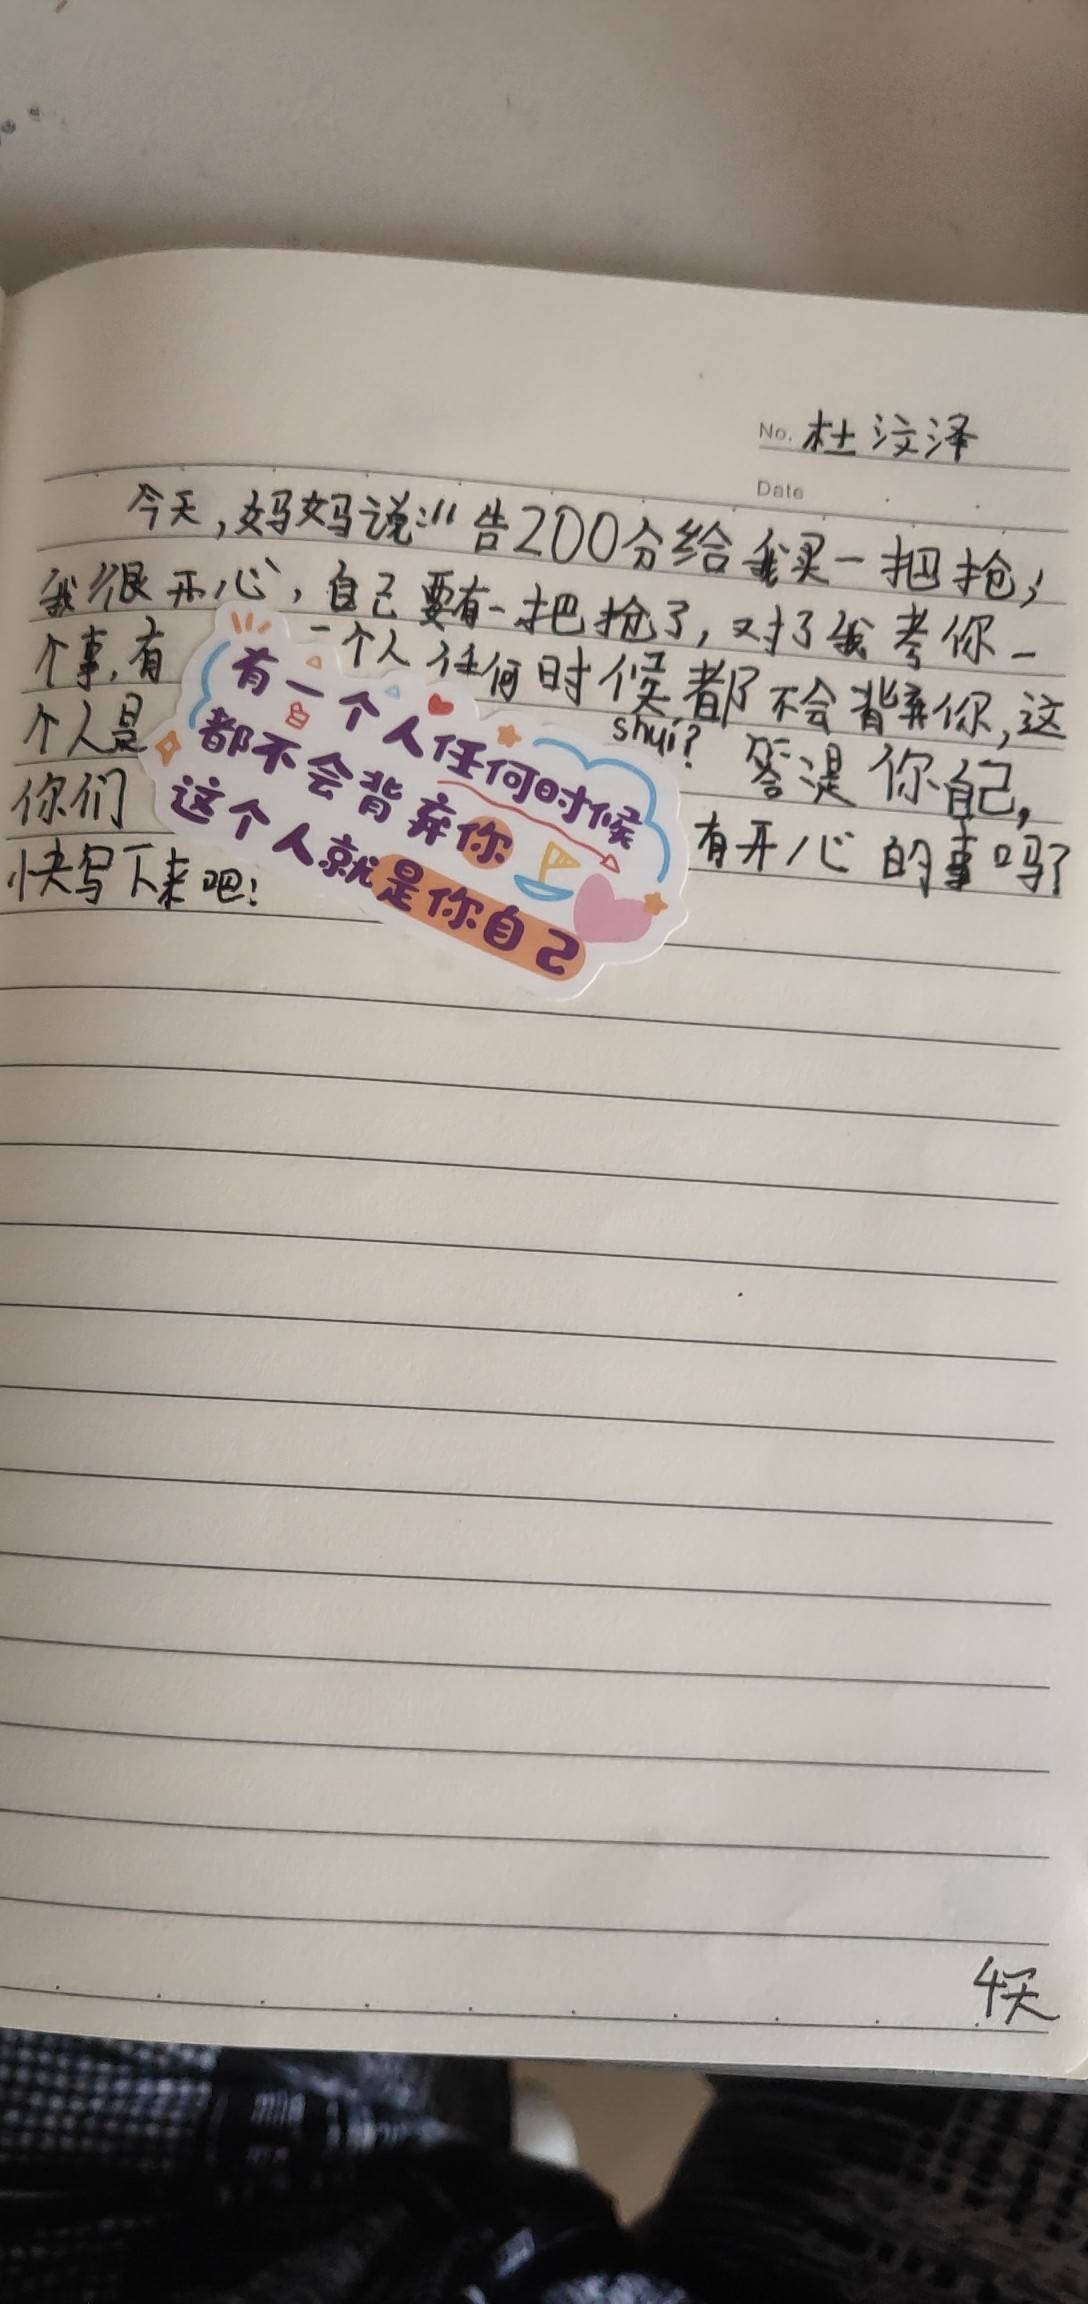 No. 杜汶泽
Date
今天,妈妈说:"告200分给我买一把抢,
我很开心,自己要有一把抢了,对了我考你一
个事,有一个人任何时候都不会背弃你,这
个人是shuí?答是你自己,
你们有开心的事吗?
快写下来吧!
有一个人任何时候
都不会背弃你
这个人就是你自己
4天